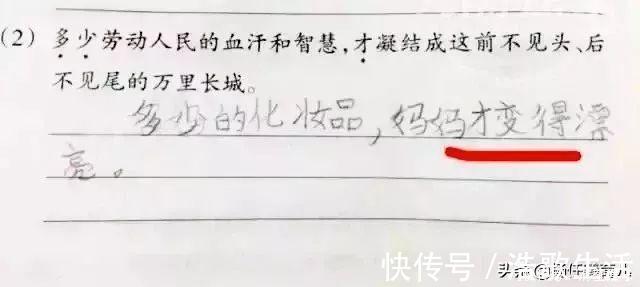 （2）多少劳动人民的血汗和智慧，才凝结成这前不见头、后
不见尾的万里长城。
多少的化妆品，妈妈才变得漂
亮。
快传号／浩歌生活